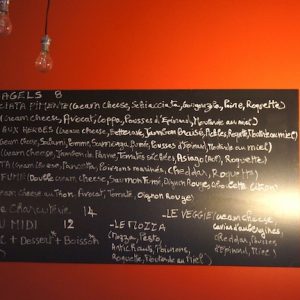 AGELS 8
(Cream Cheese, Schiacciata, Gorgonzola, Poire, Roquette)
(Cream Cheese, Avocat, Coppa, Pousses d'Epinard, Moutarde au miel)
AUX HERBES (Cream Cheese, Betterave, Jambon Braisé, Pickles, Roquette, Moutarde au miel)
Cream Cheese, Pousses d'Epinard, Moutarde au miel)
Cream Cheese, Jambon de Parme, Tomates séchées, Asiago, Roquette)
TA (Cream Cheese, Pancetta, Poivrons marinés, Cheddar, Roquette)
FUMÉ (Double Cream Cheese, Saumon Fumé, Oignon Rouge, Citron)
Cream Cheese au Thon, Avocat, Tomate, Oignon Rouge)
e Charcuterie 14
U MIDI 12
+ Dessert + Boisson
-LE MOZZA
(Mozza, Pesto,
Artichauts, Poivrons,
Roquette, Moutarde au Miel)
-LE VEGGIE (Cream Cheese,
Caviar d'aubergines,
Cheddar, Pousses
d'Epinard, Miel)